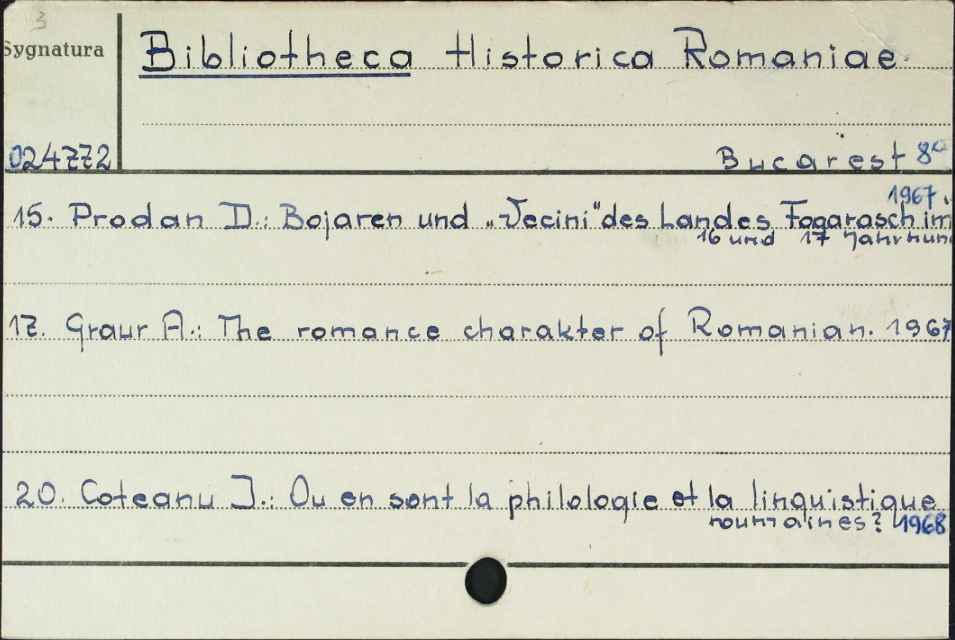 3
Sygnatura
Bibliotheca Historica Romaniae
024772
Bucarest 8°
1967.
15. Prodan D.: Bojaren und „Vecini" des Landes Fogarasch im
16 und 17 Jahrhun
17. Graur A.: The romance charakter of Romanian. 1967
20. Coteanu J.: Ou en sont la philologie et la linguistique
roumaines? 1968